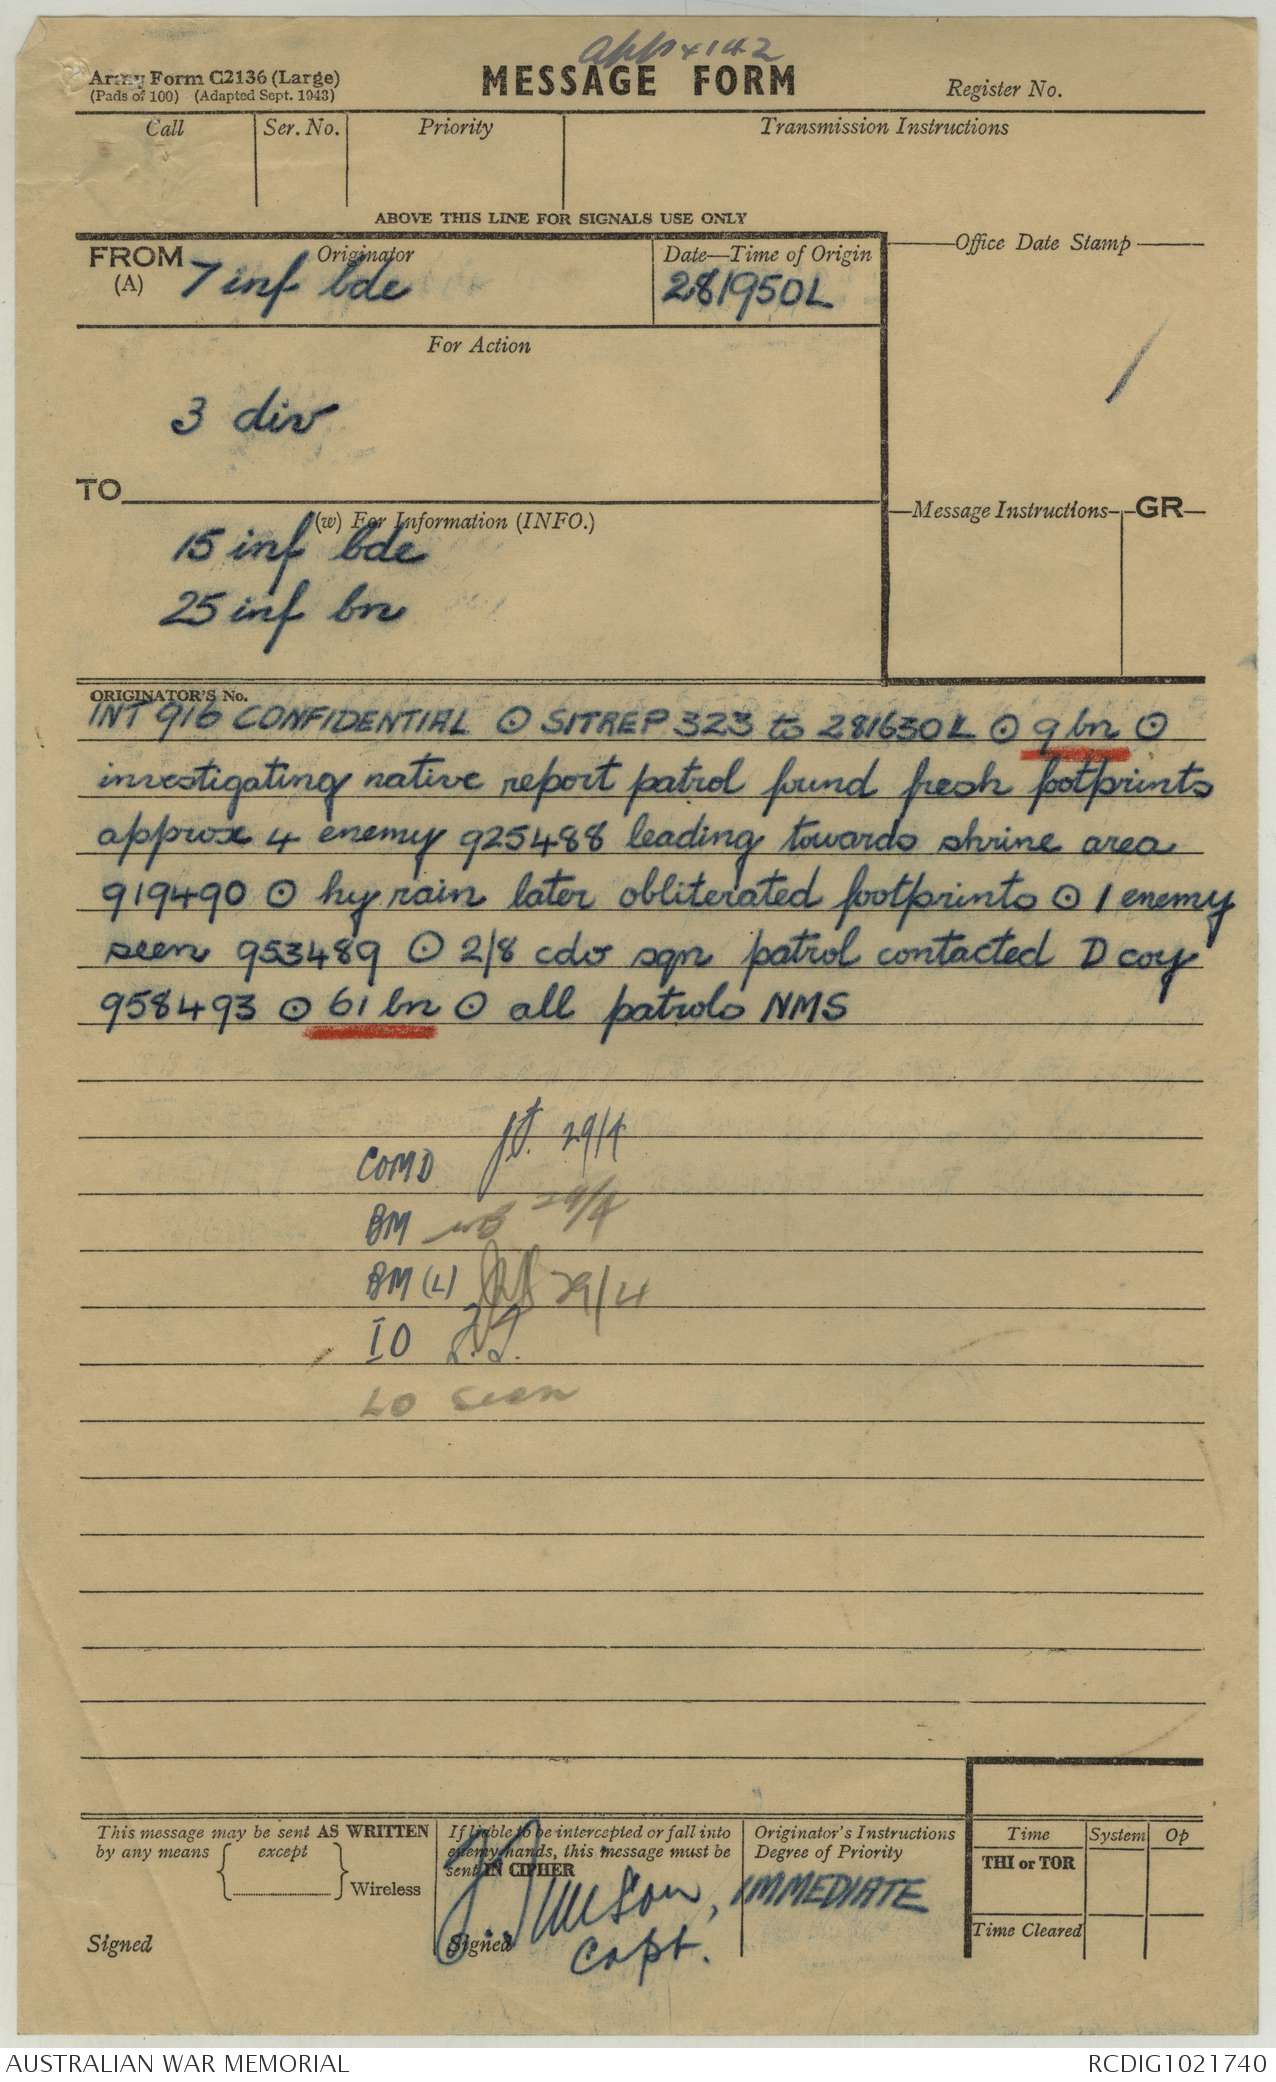 app 142
Army Form C2136 (Large)
(Pads of 100) (Adapted Sept. 1943)
MESSAGE FORM
Register No.
Call
Ser. No.
Priority
Transmission Instructions
ABOVE THIS LINE FOR SIGNALS USE ONLY
FROM
(A)
Originator
7 inf bde
Date—Time of Origin
281950L
Office Date Stamp
For Action
3 div
TO
(w) For Information (INFO.)
15 inf bde
25 inf bn
Message Instructions
GR
ORIGINATOR'S No.
INT 916 CONFIDENTIAL ⊙ SITREP 323 to 281630L ⊙ 9 bn ⊙
investigating native report patrol found fresh footprints
approx 4 enemy 925488 leading towards shrine area
919490 ⊙ hy rain later obliterated footprints ⊙ 1 enemy
seen 953489 ⊙ 2/8 cdo sqn patrol contacted D coy
958493 ⊙ 61 bn ⊙ all patrols NMS
COMD 29/4
BM 29/4
BM (L) 29/4
IO
LO seen
This message may be sent AS WRITTEN
by any means { except
} Wireless
Signed
If liable to be intercepted or fall into
enemy hands, this message must be
sent IN CIPHER
Signed
Capt.
Originator's Instructions
Degree of Priority
IMMEDIATE
Time
System
Op
THI or TOR
Time Cleared
AUSTRALIAN WAR MEMORIAL
RCDIG1021740